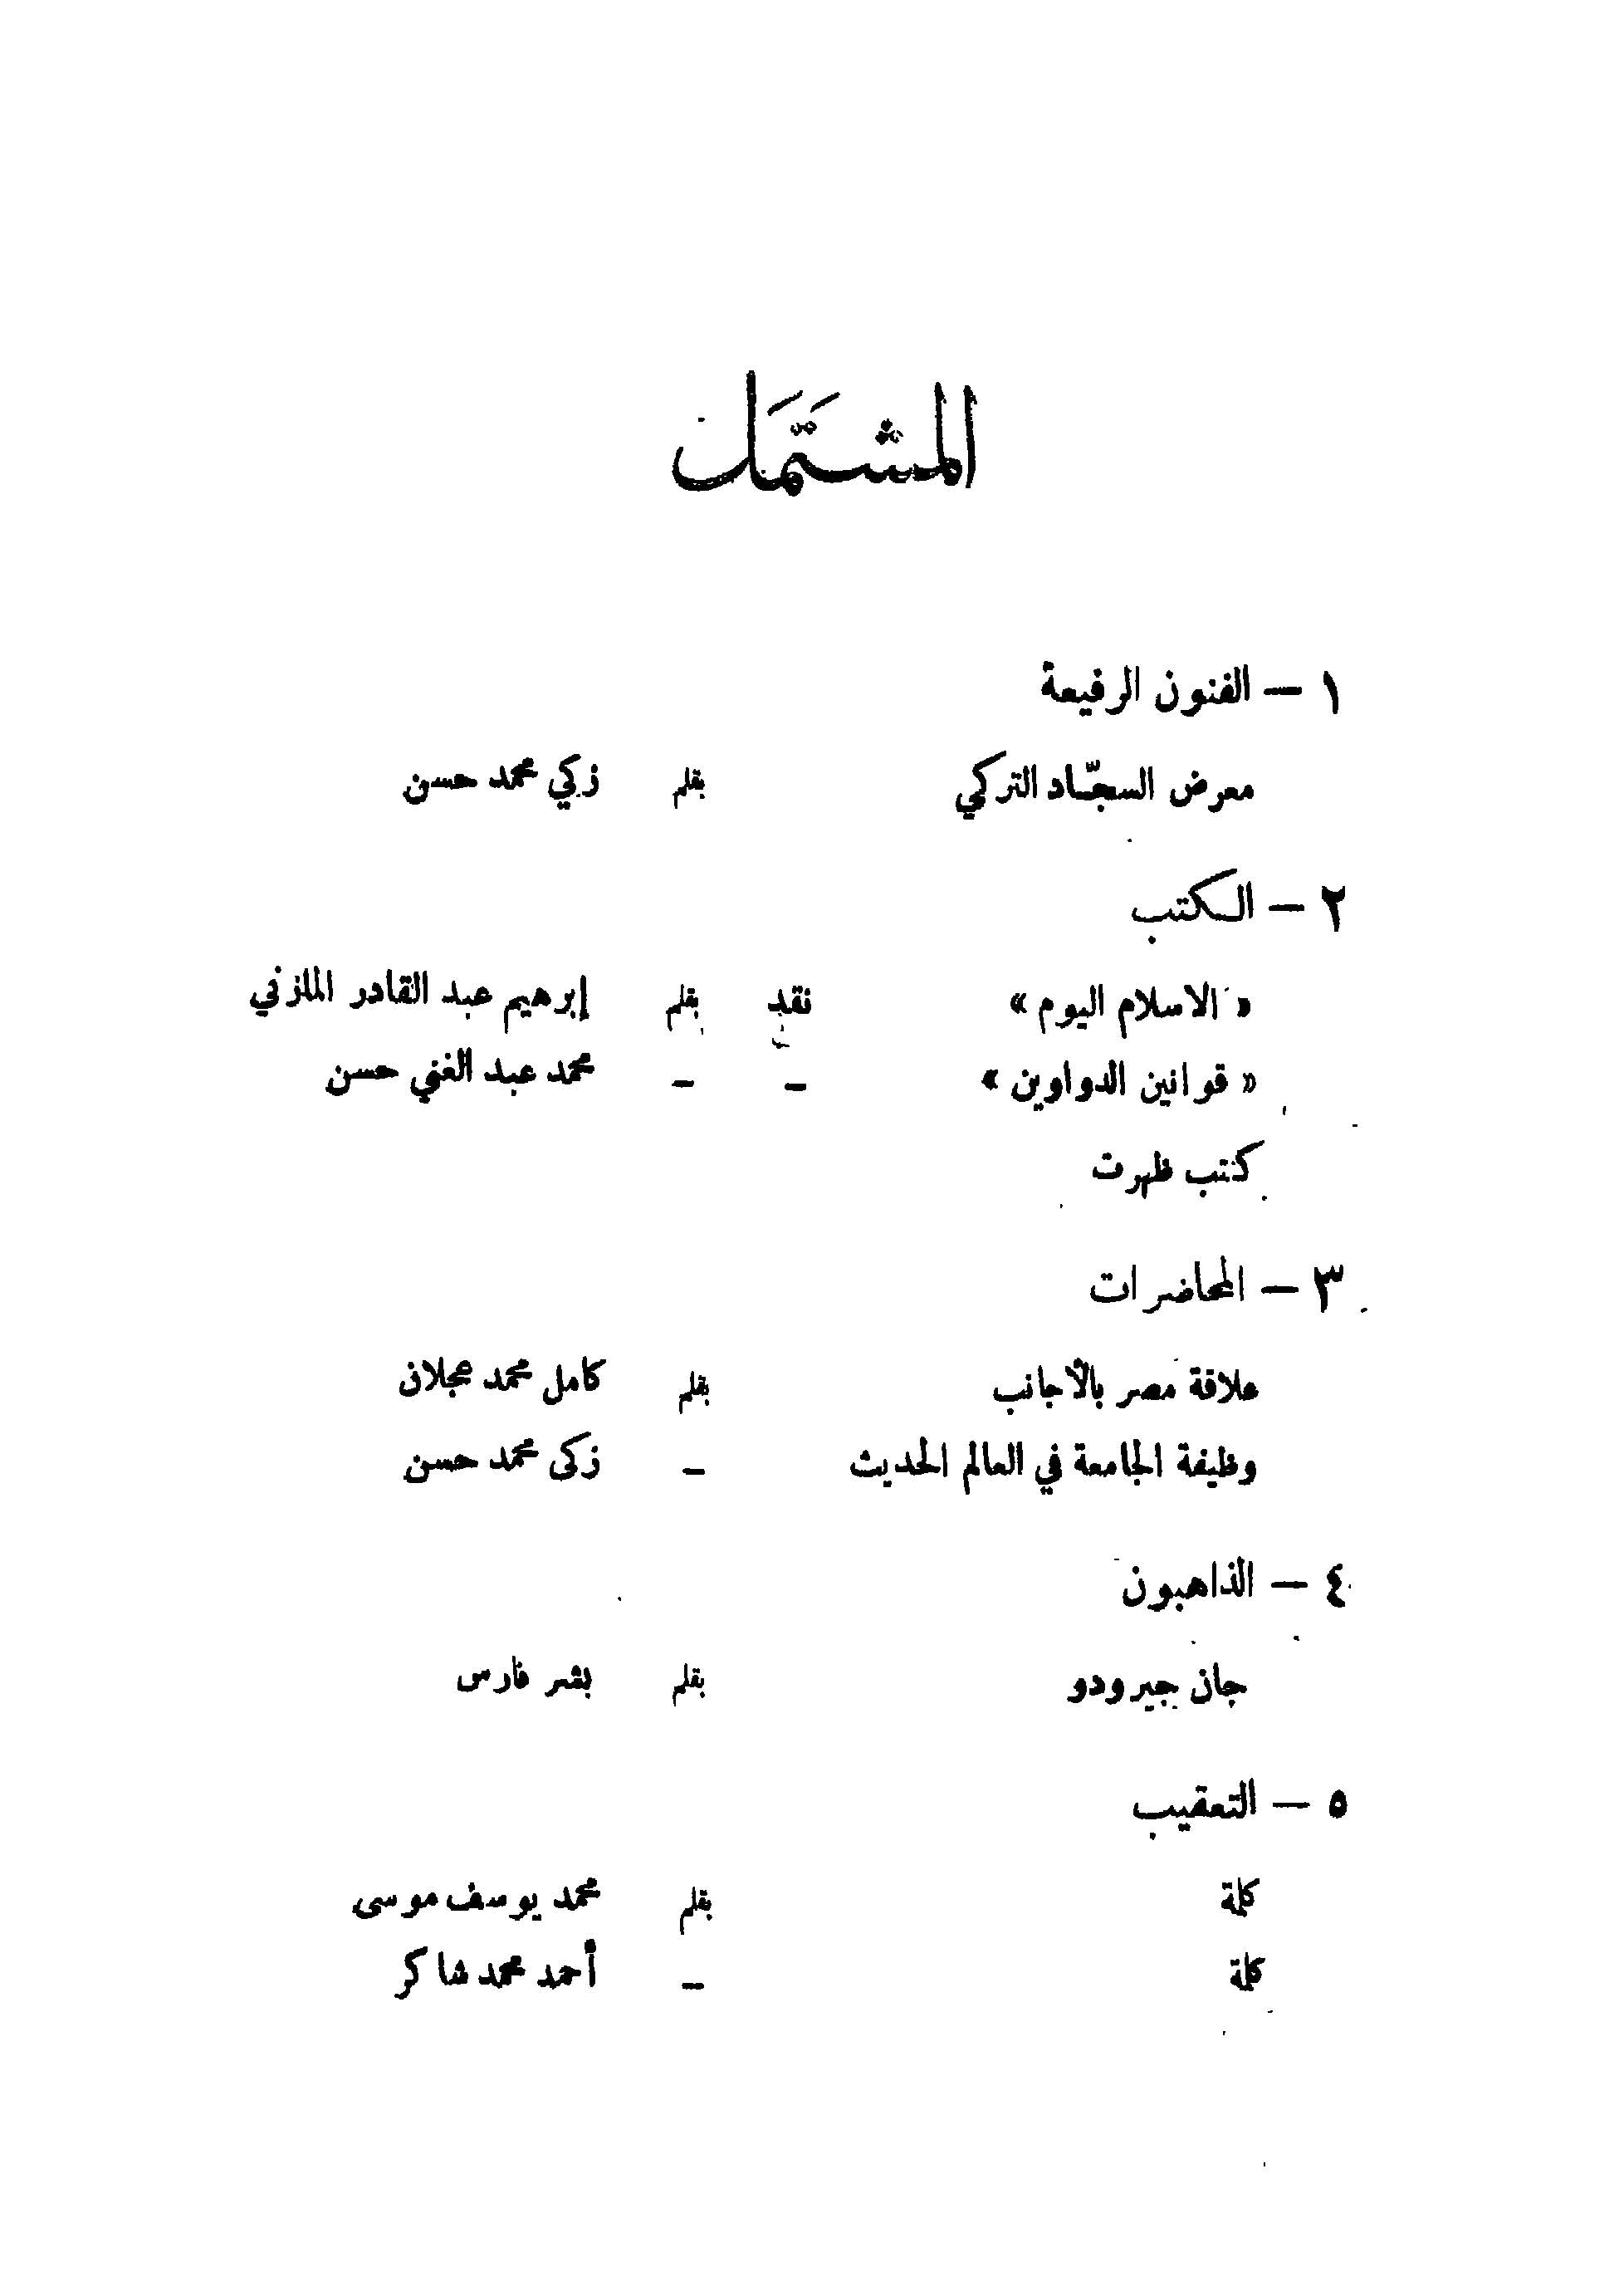 المشتَمَل
١ — الفنون الرفيعة
معرض السجّاد التركي بقلم زكي محمد حسن
٢ — الكتب
« الاسلام اليوم » نقد بقلم إبرهيم عبد القادر المازني
« قوانين الدواوين » – – محمد عبد الغني حسن
كتب ظهرت
٣ — المحاضرات
علاقة مصر بالأجانب بقلم كامل محمد عجلان
وظيفة الجامعة في العالم الحديث – زكى محمد حسن
٤ — الذاهبون
جان جيرودو بقلم بشر فارس
٥ — التعقيب
كلمة بقلم محمد يوسف موسى
كلمة – أحمد محمد شاكر